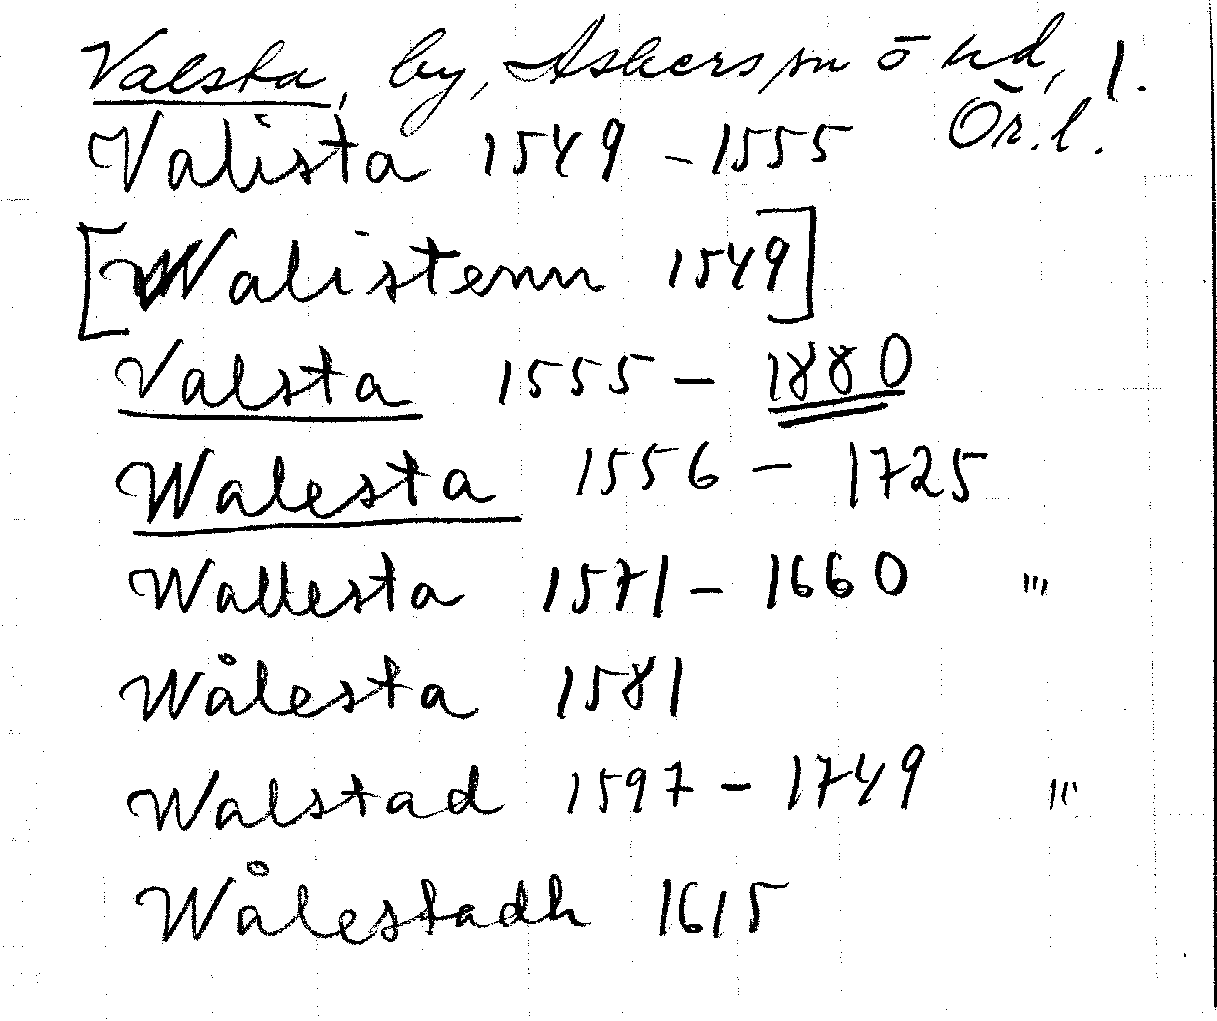 Valsta, by, Askers sn ō hd, 1.
Ör.l.
Valista 1549 - 1555
[Walistenn 1549]
Valsta 1555 - 1880
Walesta 1556 - 1725
Wallesta 1571 - 1660 "'
Wålesta 1581
Walstad 1597 - 1749 "'
Wålestadh 1615